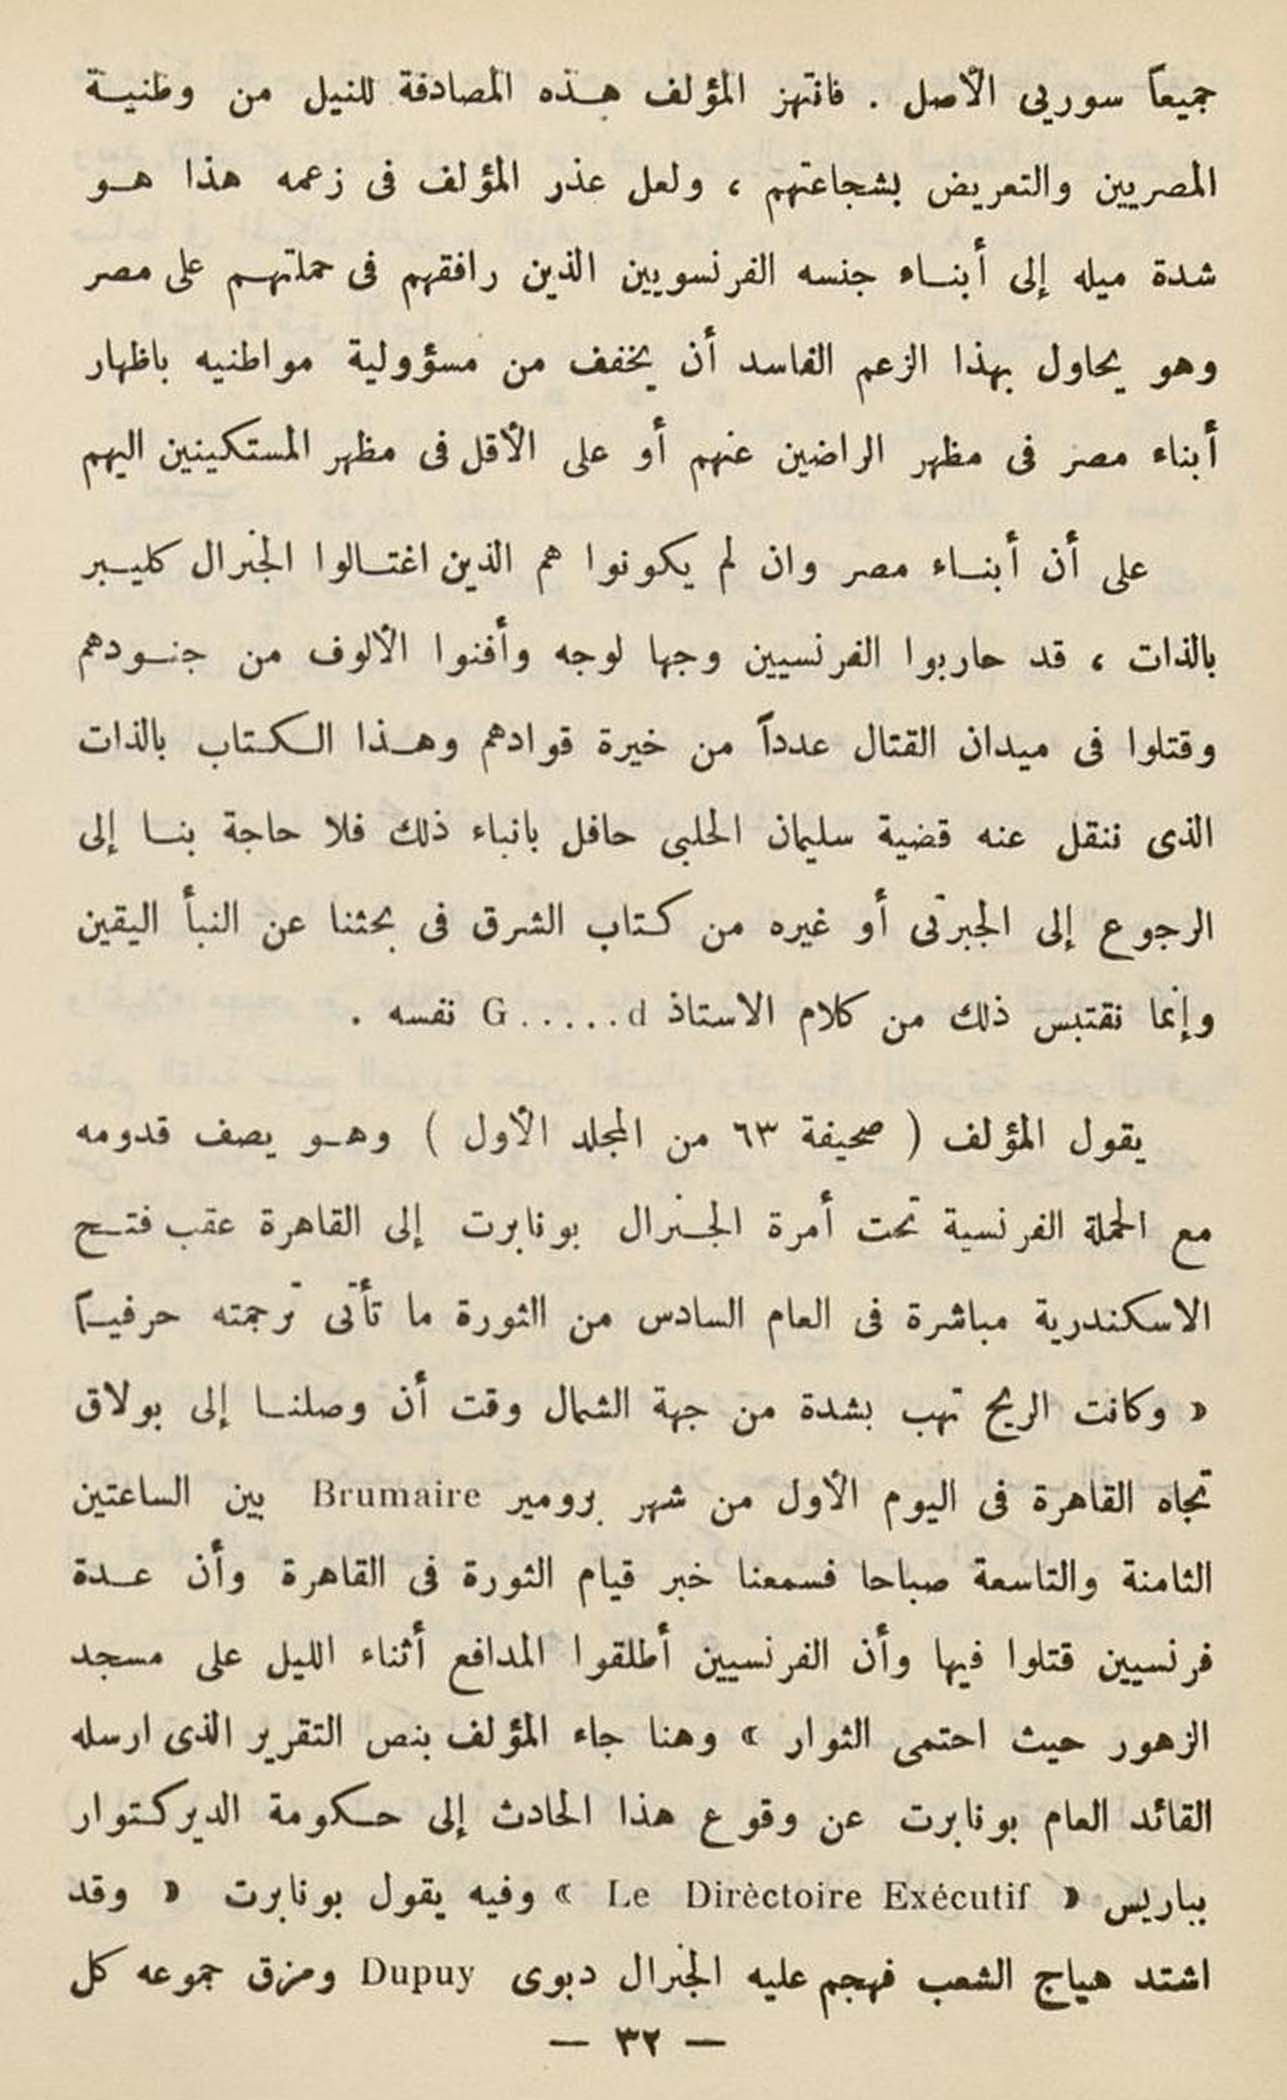 جميعاً سوريى الأصل . فانتهز المؤلف هذه المصادفة للنيل من وطنية
المصريين والتعريض بشجاعتهم ، ولعل عذر المؤلف فى زعمه هذا هو
شدة ميله إلى أبناء جنسه الفرنسويين الذين رافقهم فى حملتهم على مصر
وهو يحاول بهذا الزعم الفاسد أن يخفف من مسؤولية مواطنيه باظهار
أبناء مصر فى مظهر الراضين عنهم أو على الأقل فى مظهر المستكينين اليهم
على أن أبناء مصر وان لم يكونوا هم الذين اغتالوا الجنرال كليبر
بالذات ، قد حاربوا الفرنسيين وجها لوجه وأفنوا الألوف من جنودهم
وقتلوا فى ميدان القتال عدداً من خيرة قوادهم وهذا الكتاب بالذات
الذى ننقل عنه قضية سليمان الحلبى حافل بانباء ذلك فلا حاجة بنا إلى
الرجوع إلى الجبرتى أو غيره من كتاب الشرق فى بحثنا عن النبأ اليقين
وإنما نقتبس ذلك من كلام الاستاذ G.....d نفسه .
يقول المؤلف ( صحيفة ٦٣ من المجلد الأول ) وهو يصف قدومه
مع الحملة الفرنسية تحت أمرة الجنرال بونابرت إلى القاهرة عقب فتح
الاسكندرية مباشرة فى العام السادس من الثورة ما تأتى ترجمته حرفياً
« وكانت الريح تهب بشدة من جهة الشمال وقت أن وصلنا إلى بولاق
تجاه القاهرة فى اليوم الأول من شهر برومير Brumaire بين الساعتين
الثامنة والتاسعة صباحا فسمعنا خبر قيام الثورة فى القاهرة وأن عدة
فرنسيين قتلوا فيها وأن الفرنسيين أطلقوا المدافع أثناء الليل على مسجد
الزهور حيث احتمى الثوار » وهنا جاء المؤلف بنص التقرير الذى ارسله
القائد العام بونابرت عن وقوع هذا الحادث إلى حكومة الديركتوار
بباريس « Le Dirèctoire Exécutif » وفيه يقول بونابرت « وقد
اشتد هياج الشعب فهجم عليه الجنرال دبوى Dupuy ومزق جموعه كل
— ٣٢ —